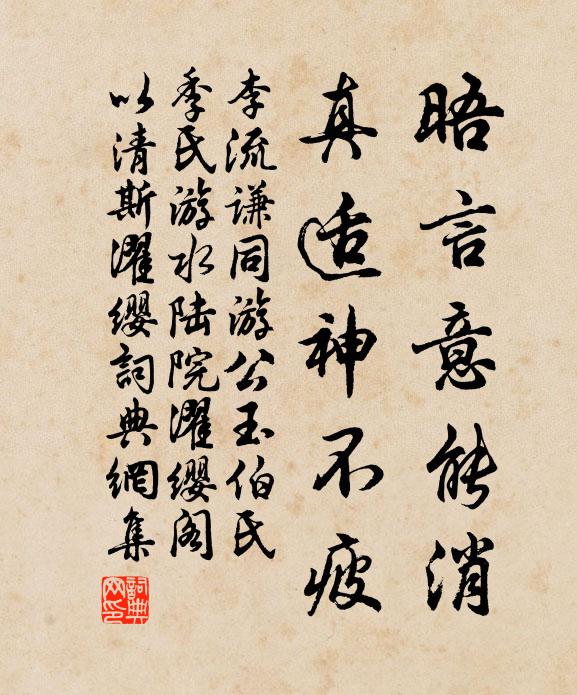 晤言意能消
真适神不疲
李流谦同游公玉伯氏
季氏游水陆院濯缨阁
以清斯濯缨詞典網集
詞典